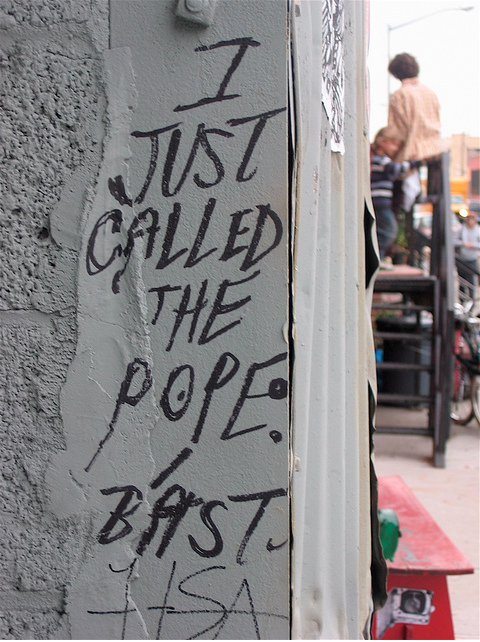 I
JUST
CALLED
THE
POPE:
BÁST.
HSA